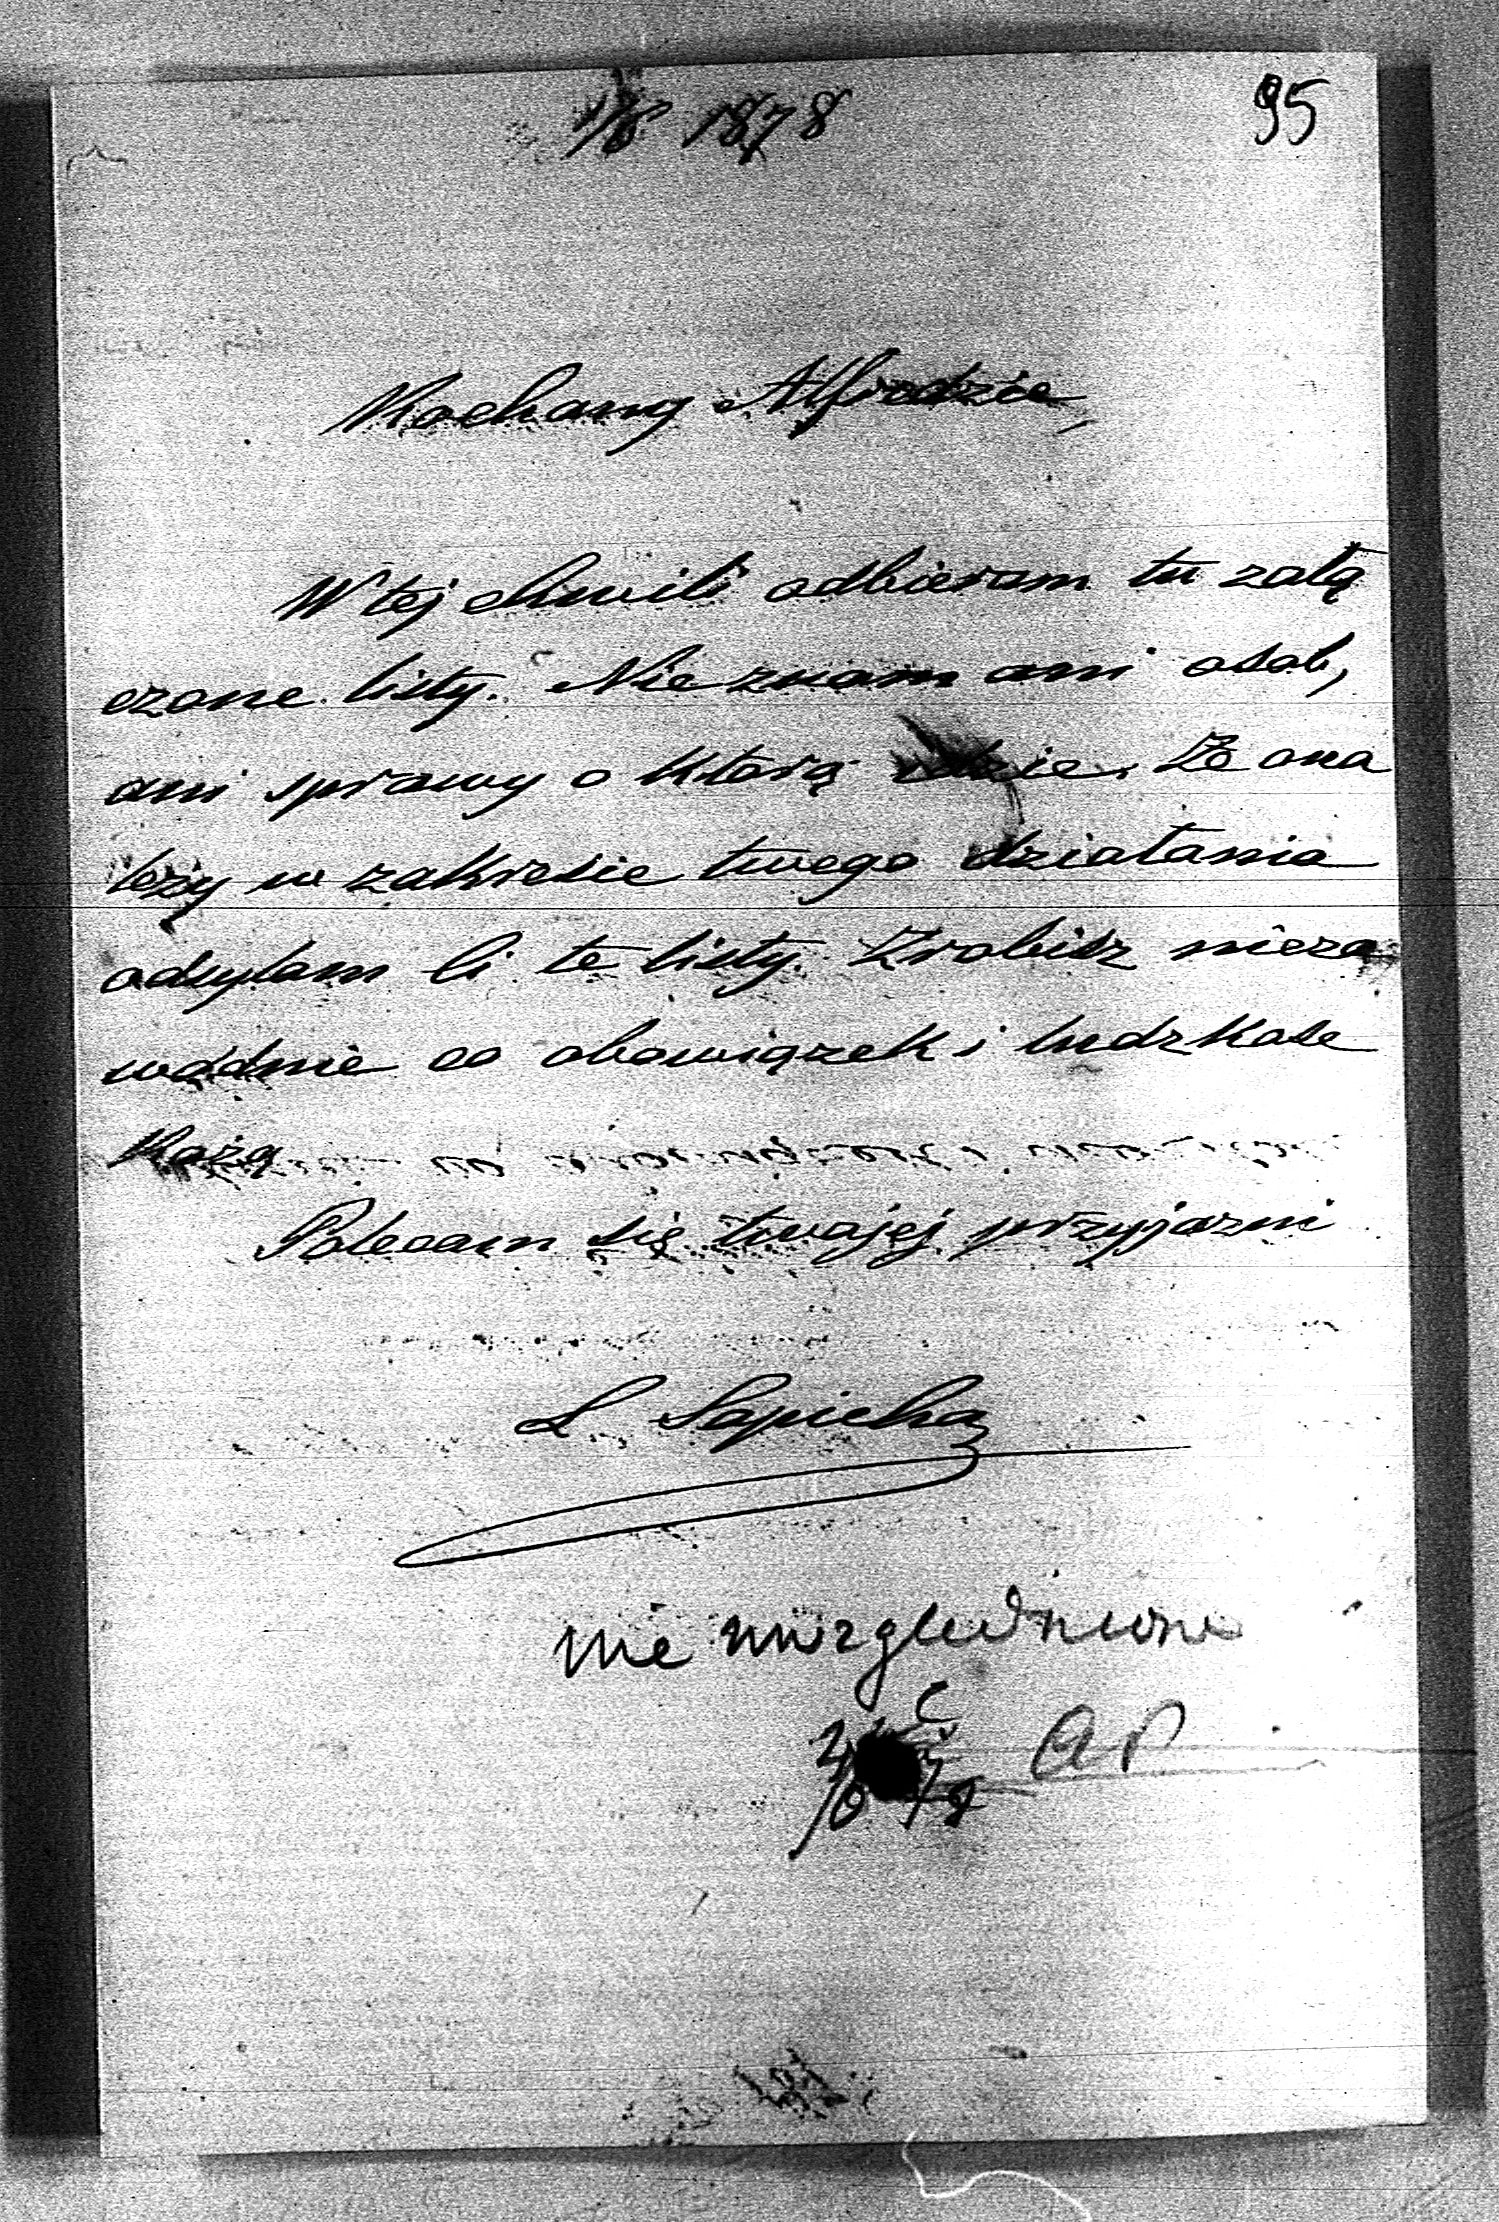 1/6 1878
95
Kochany Alfredzie,
W tej chwili odbieram tu załą
czone listy. Nie znam ani osob,
ani sprawy o którą idzie. Że ona
leży w zakresie twego działania
odsyłam Ci te listy. Zrobisz nieza
wodnie co obowiązek i ludzkość
każą
Polecam się twojej przyjaźni
L Sapieha
nie uwzględnione
AP